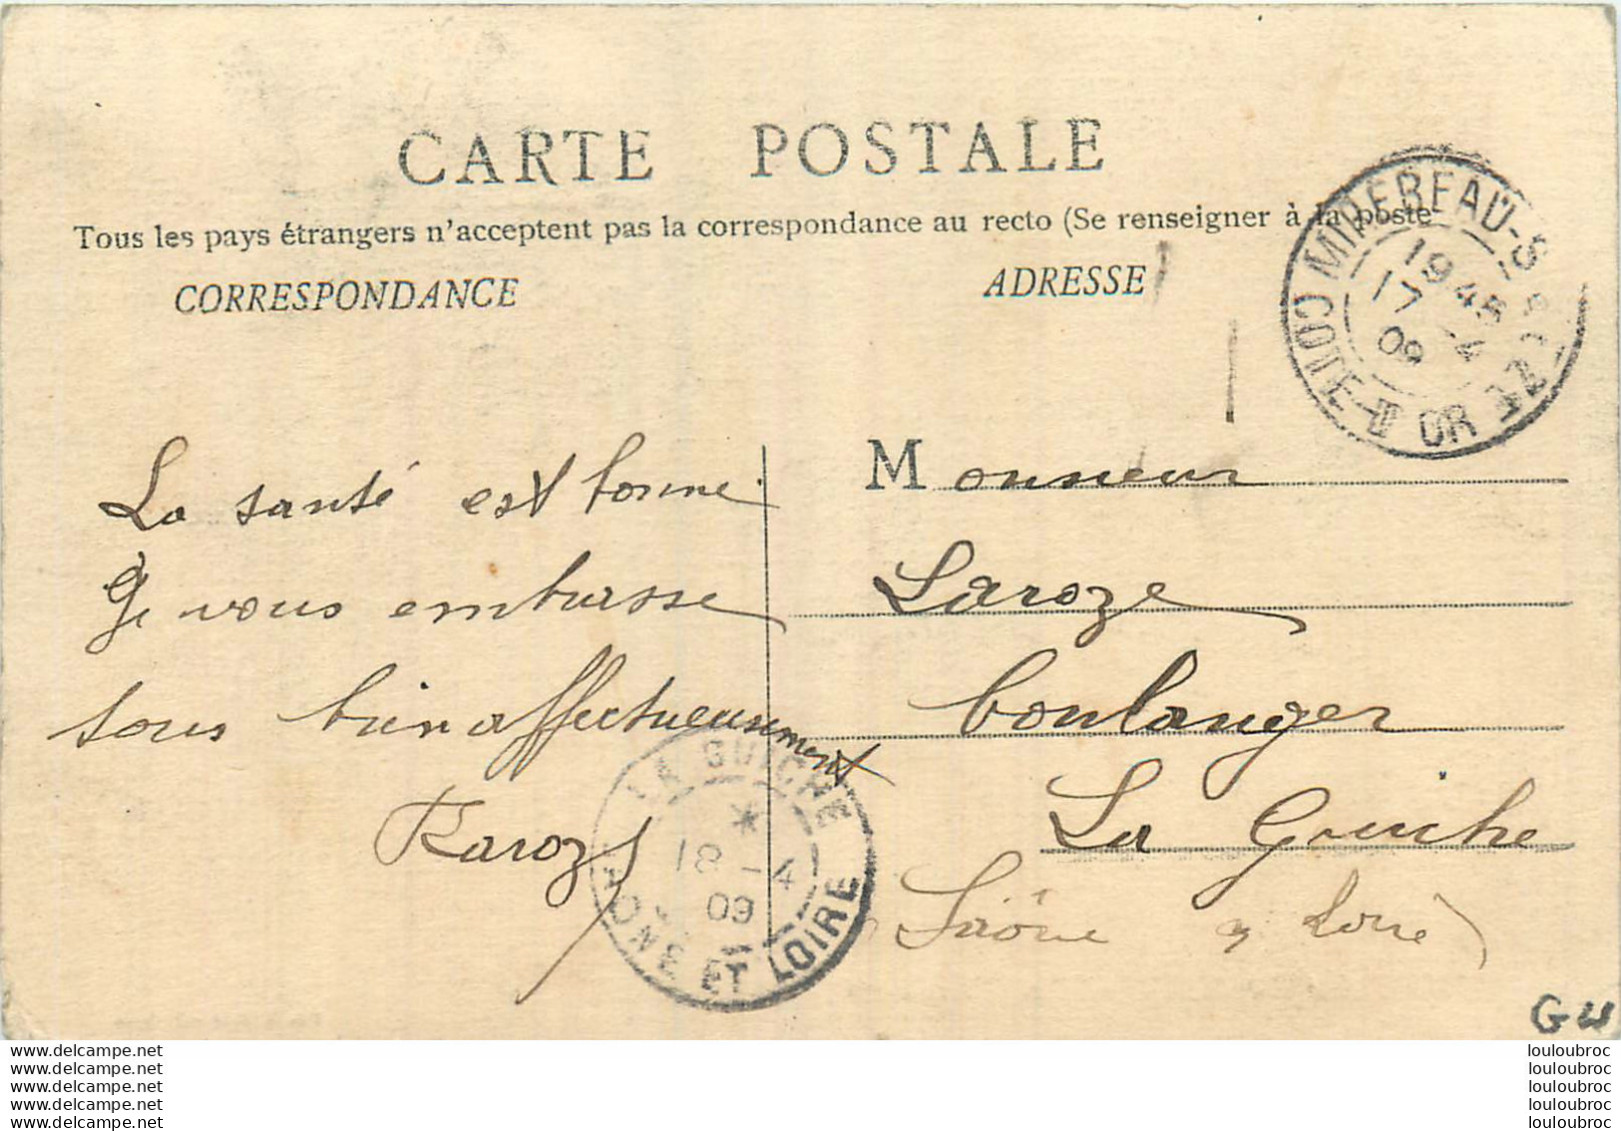 CARTE POSTALE
Tous les pays étrangers n'acceptent pas la correspondance au recto (Se renseigner à la poste
CORRESPONDANCE
ADRESSE
MIREBEAU-S
COTE-D'OR
1945
17 -4
09
La santé est bonne.
Je vous embrasse
tous bien affectueusement
Monsieur
Laroze
boulanger
La Guiche
Saône & Loire
LA GUICHE
*
18 -4
09
SAONE ET LOIRE
www.delcampe.net
www.delcampe.net
www.delcampe.net
www.delcampe.net
www.delcampe.net
louloubroc
louloubroc
louloubroc
louloubroc
louloubroc